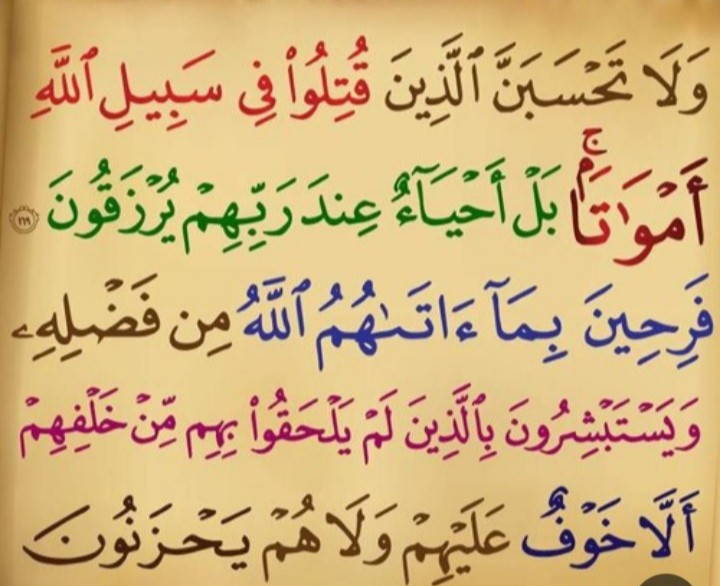 وَلَا تَحْسَبَنَّ ٱلَّذِينَ قُتِلُوا۟ فِى سَبِيلِ ٱللَّهِ
أَمْوَٰتًۢا ۚ بَلْ أَحْيَآءٌ عِندَ رَبِّهِمْ يُرْزَقُونَ ١٦٩
فَرِحِينَ بِمَآ ءَاتَىٰهُمُ ٱللَّهُ مِن فَضْلِهِۦ
وَيَسْتَبْشِرُونَ بِٱلَّذِينَ لَمْ يَلْحَقُوا۟ بِهِم مِّنْ خَلْفِهِمْ
أَلَّا خَوْفٌ عَلَيْهِمْ وَلَا هُمْ يَحْزَنُونَ